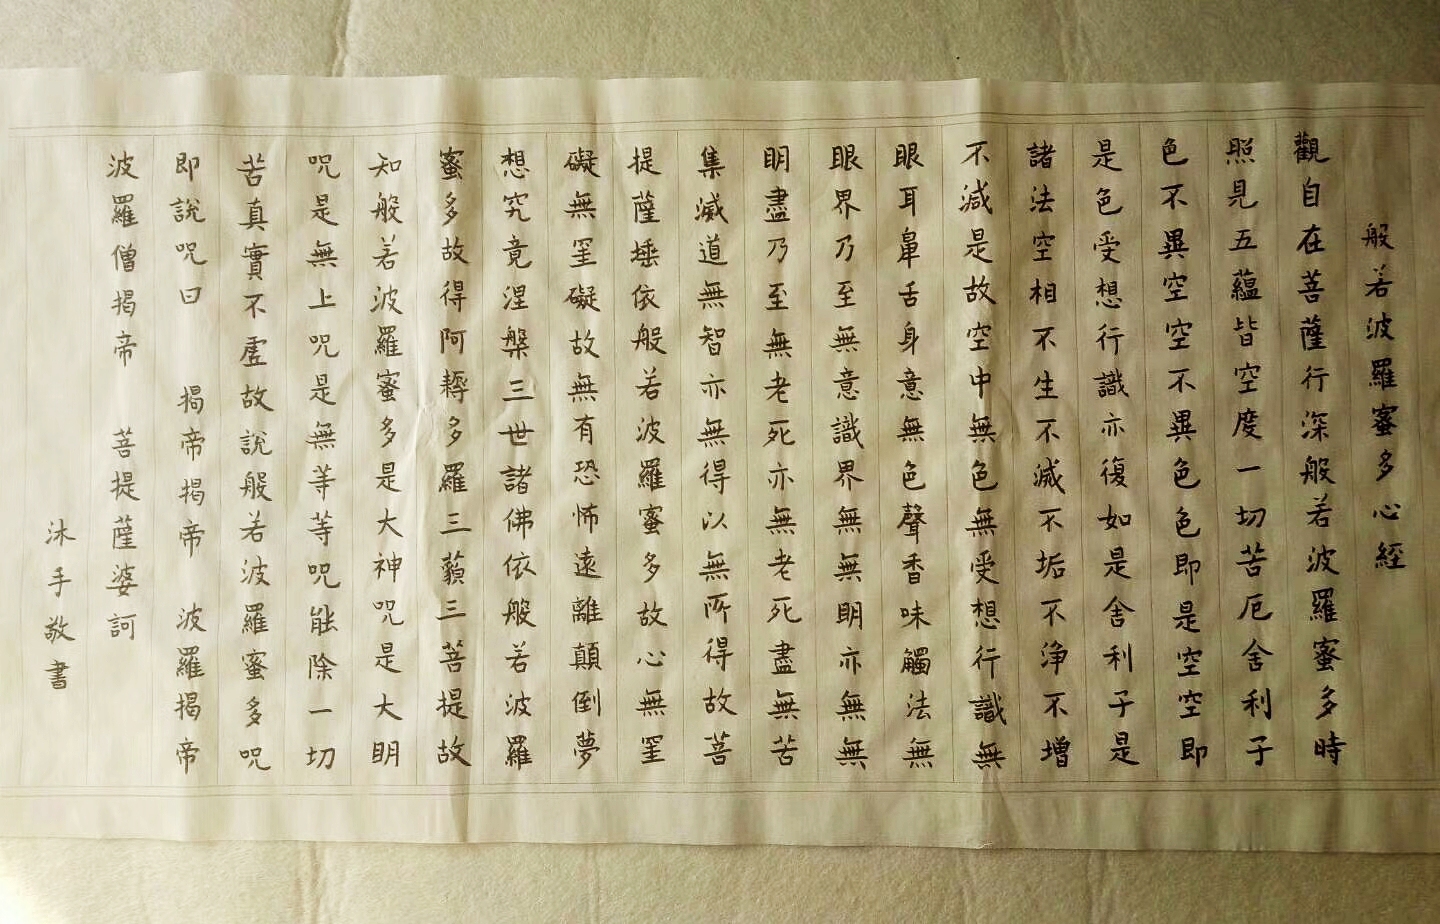 般若波羅蜜多心經
觀自在菩薩行深般若波羅蜜多時
照見五蘊皆空度一切苦厄舍利子
色不異空空不異色色即是空空即
是色受想行識亦復如是舍利子是
諸法空相不生不滅不垢不淨不增
不減是故空中無色無受想行識無
眼耳鼻舌身意無色聲香味觸法無
眼界乃至無意識界無無眀亦無無
眀盡乃至無老死亦無老死盡無苦
集滅道無智亦無得以無所得故菩
提薩埵依般若波羅蜜多故心無罣
礙無罣礙故無有恐怖遠離顛倒夢
想究竟涅槃三世諸佛依般若波羅
蜜多故得阿耨多羅三藐三菩提故
知般若波羅蜜多是大神咒是大眀
咒是無上咒是無等等咒能除一切
苦真實不虛故說般若波羅蜜多咒
即說咒曰 揭帝揭帝 波羅揭帝
波羅僧揭帝 菩提薩婆訶
沐手敬書